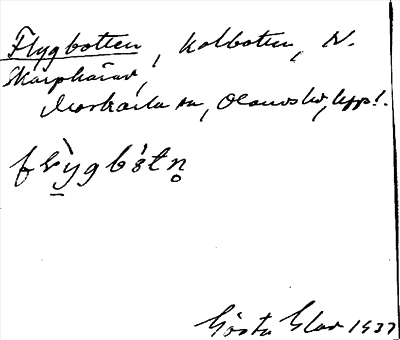 Flygbotten, Kolbotten, N.
Skarphäran,
Markarla sn, Olands hd, Uppl.
flỳgbótn̥
Gösta Elav 1937